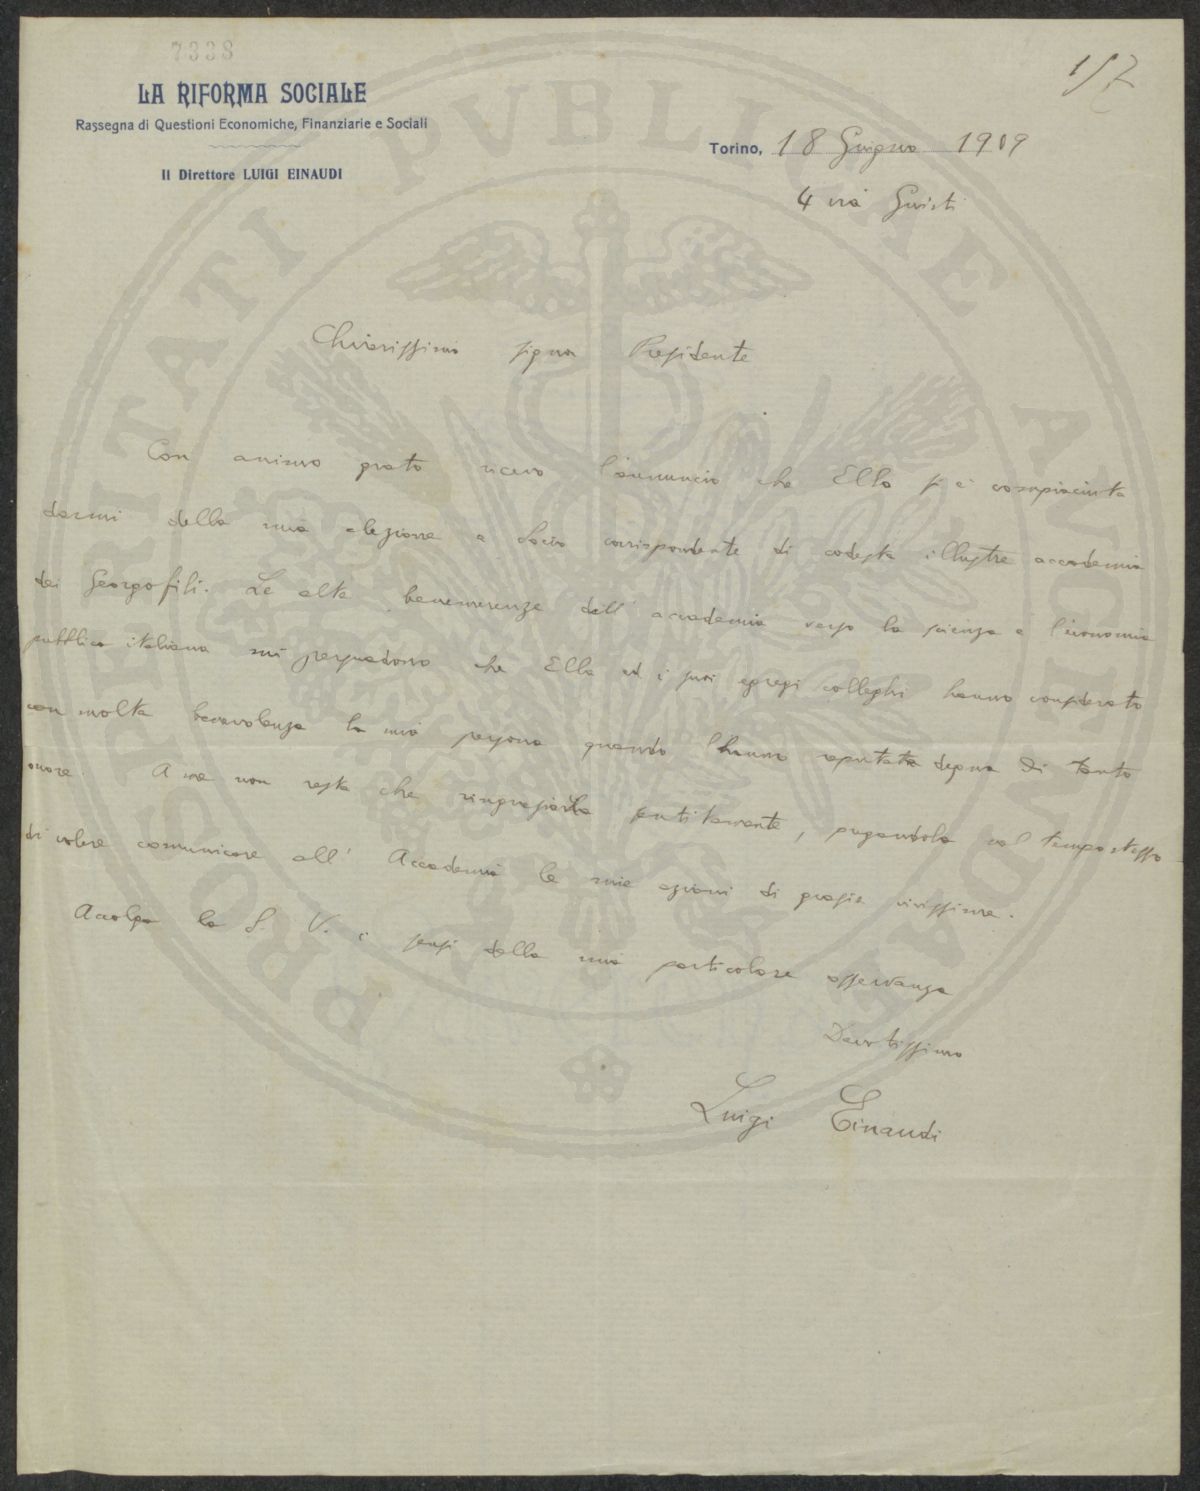 7338
1/7
LA RIFORMA SOCIALE
Rassegna di Questioni Economiche, Finanziarie e Sociali
Il Direttore LUIGI EINAUDI
Torino, 18 Giugno 1909
4 via Giusti
Chiarissimo signor Presidente
Con animo grato ricevo l'annuncio che Ella si è compiaciuta
darmi della mia elezione a Socio corrispondente di codesta illustre accademia
dei Georgofili. Le alte benemerenze dell'accademia verso la scienza e l'economia
pubblica italiana mi persuadono che Ella ed i suoi egregi colleghi hanno considerato
con molta benevolenza la mia persona quando l'hanno reputata degna di tanto
onore. A me non resta che ringraziarLa sentitamente, pregandola nel tempo stesso
di volere comunicare all'Accademia le mie azioni di grazia vivissime.
Accolga la S. V. i sensi della mia particolare osservanza
Devotissimo
Luigi Einaudi
PROSPERITATI PVBLICAE AVGENDAE